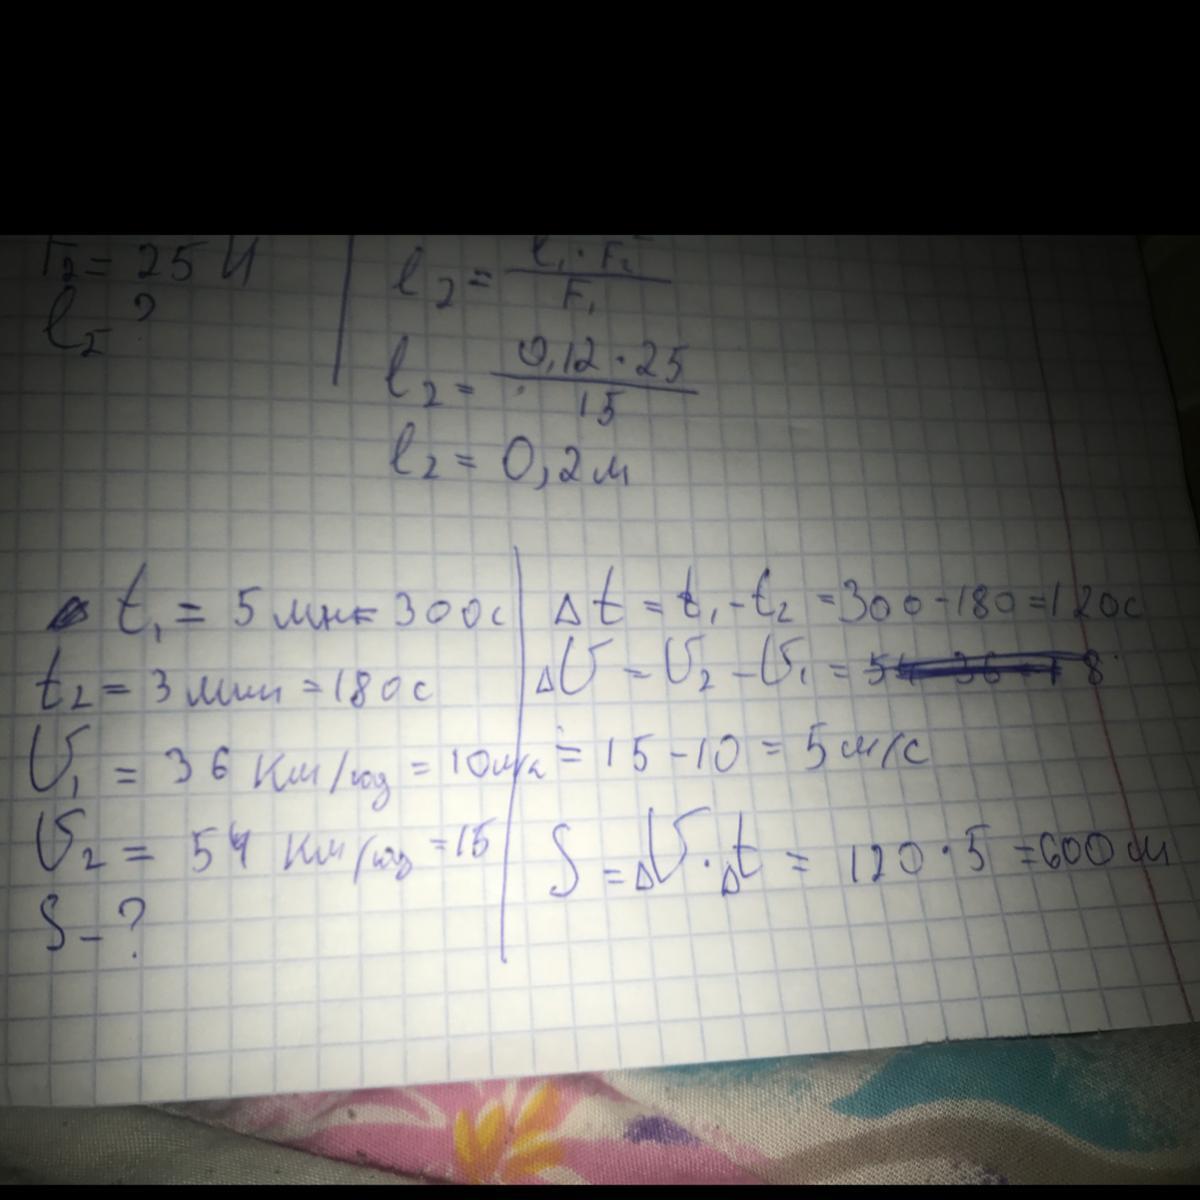 F₂ = 25 Н
l₂ - ?
l₂ = l₁ · F₂ / F₁
l₂ = 0,12 · 25 / 15
l₂ = 0,2 м
t₁ = 5 мин = 300с
t₂ = 3 мин = 180с
V₁ = 36 км/год = 10м/с
V₂ = 54 км/год = 15
S - ?
Δt = t₁ - t₂ = 300 - 180 = 120с
ΔV = V₂ - V₁ =
= 15 - 10 = 5 м/с
S = ΔV · Δt = 120 · 5 = 600 м